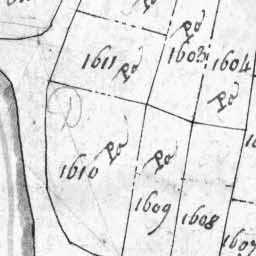 Pa
Pa
1611
Pa
1603
1604
Pa
D
1610
Pa
Pa
1609
1608
1607